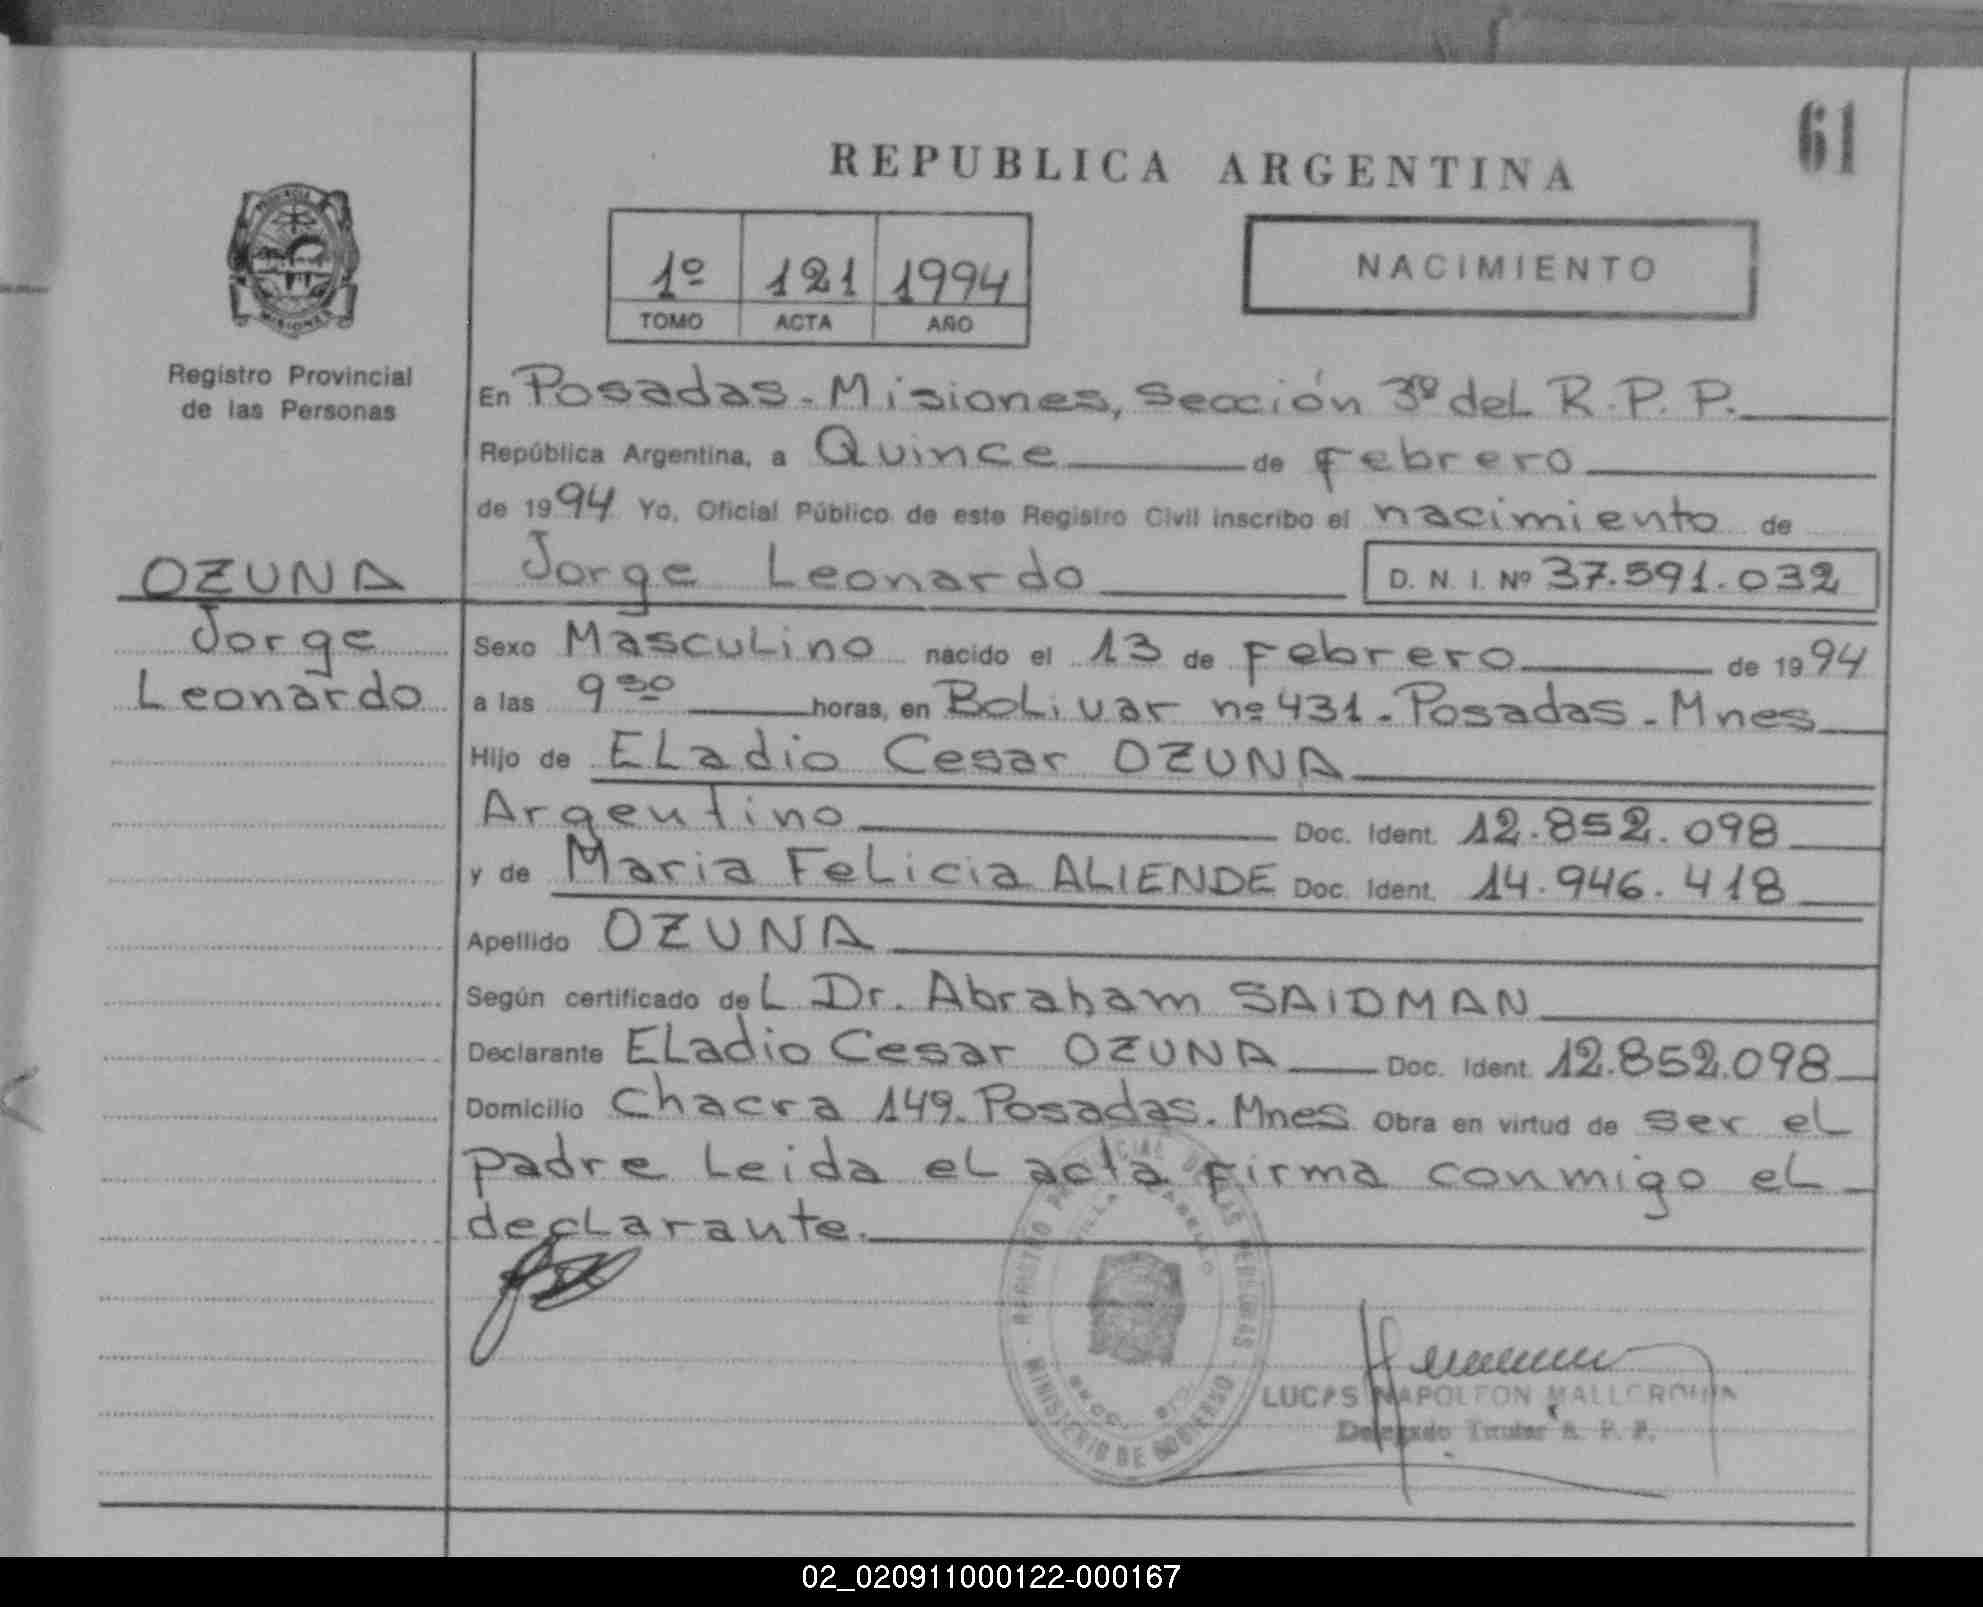 61
REPUBLICA ARGENTINA
1º 121 1994
TOMO ACTA AÑO
NACIMIENTO
MISIONES
Registro Provincial
de las Personas
OZUNA
Jorge
Leonardo
En Posadas - Misiones, Sección 3º del R.P.P.
República Argentina, a Quince de Febrero
de 1994 Yo, Oficial Público de este Registro Civil inscribo el nacimiento de
Jorge Leonardo D. N. I. Nº 37.591.032
Sexo Masculino nacido el 13 de Febrero de 1994
a las 9 30 horas, en Bolivar nº 431 - Posadas - Mnes
Hijo de Eladio Cesar OZUNA
Argentino Doc. Ident. 12.852.098
y de Maria Felicia ALIENDE Doc. Ident. 14.946.418
Apellido OZUNA
Según certificado del Dr. Abraham SAIDMAN
Declarante Eladio Cesar OZUNA Doc. Ident. 12.852.098
Domicilio Chacra 149 - Posadas - Mnes Obra en virtud de ser el
padre Leida el acta firma conmigo el
declarante.
REGISTRO PROVINCIAL DE LAS PERSONAS
MINISTERIO DE GOBIERNO
LUCAS NAPOLEON
Delegado Titular R. P. P.
02_020911000122-000167